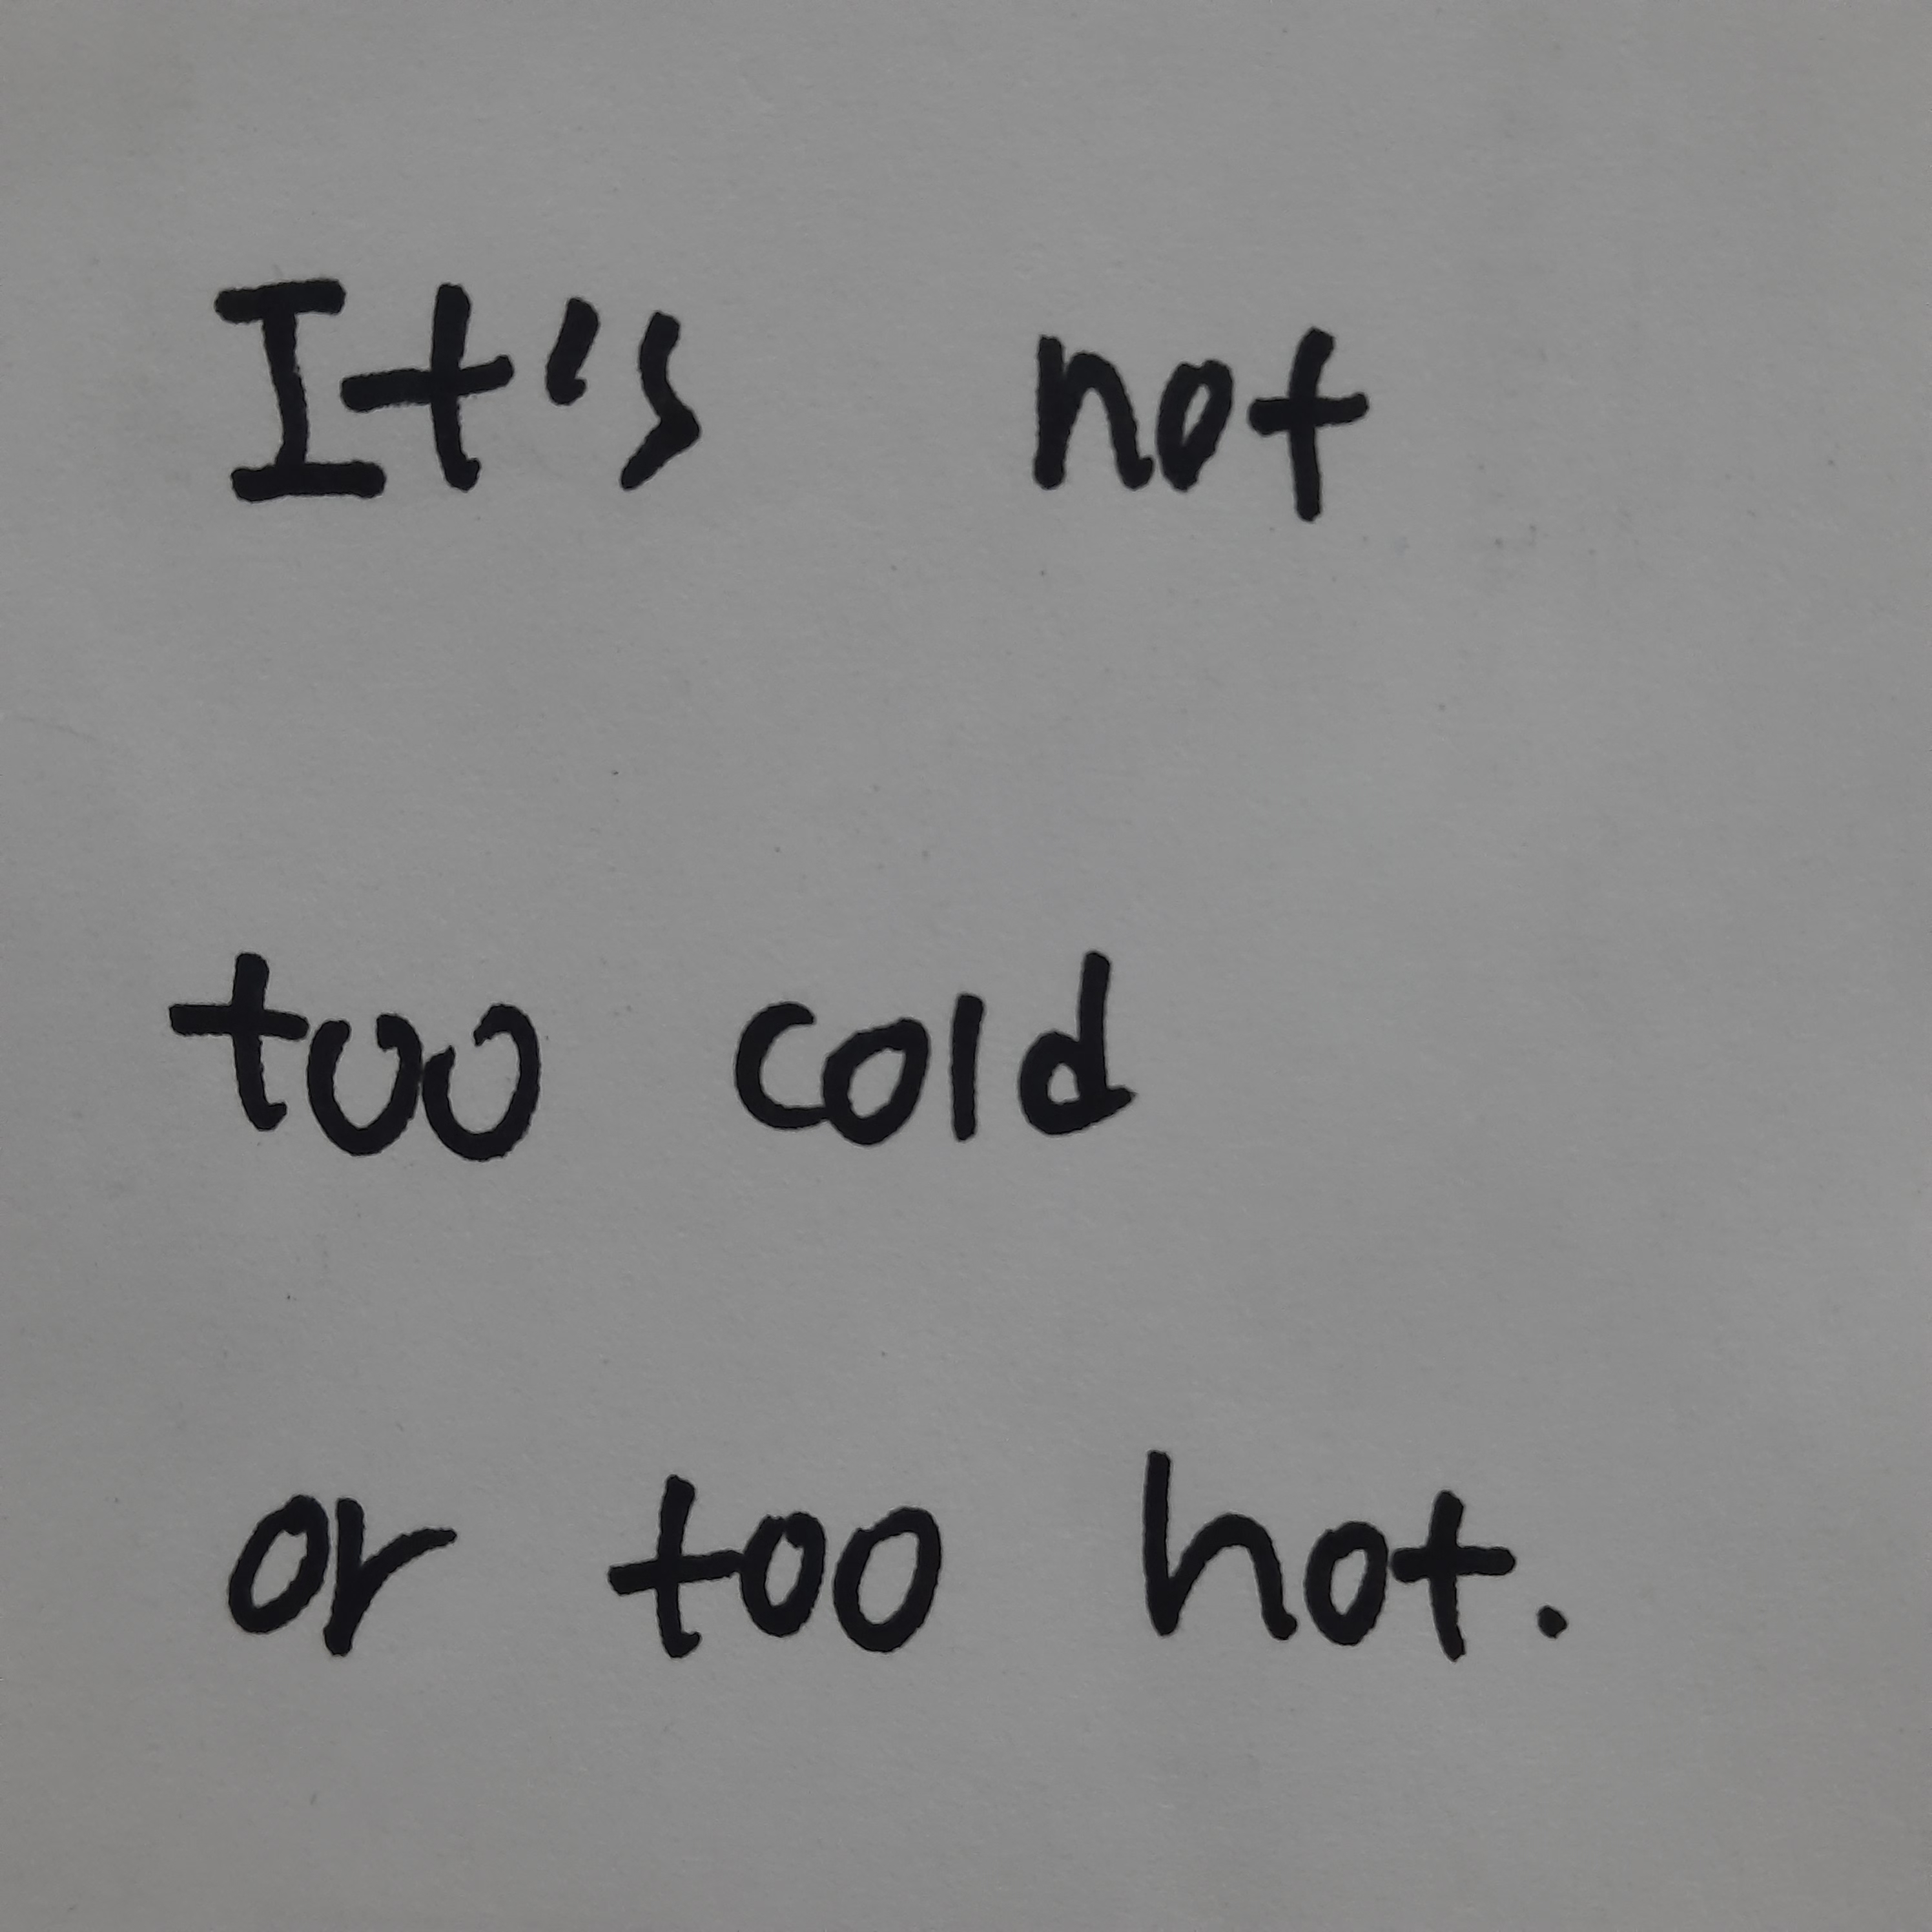 It's not
too cold
or too hot.